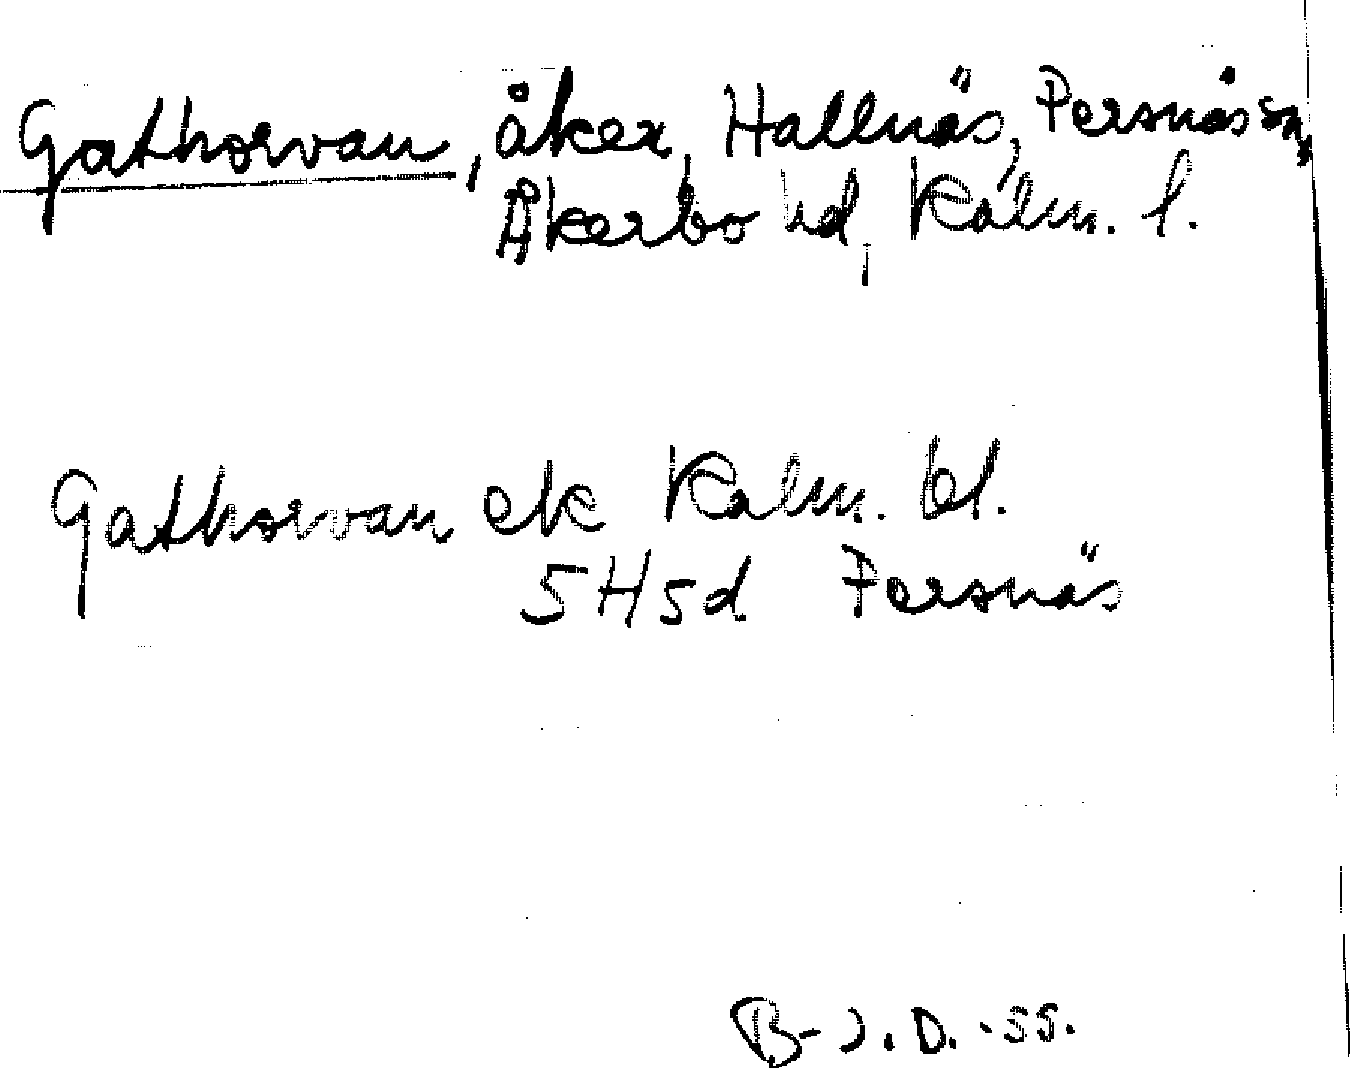 Gathorvan, åker, Hallnäs, Persnäs sn,
Åkerbo hd, Kalm. l.
Gathorvan ek Kalm. bl.
5H5d Persnäs
B-J.D. -55.